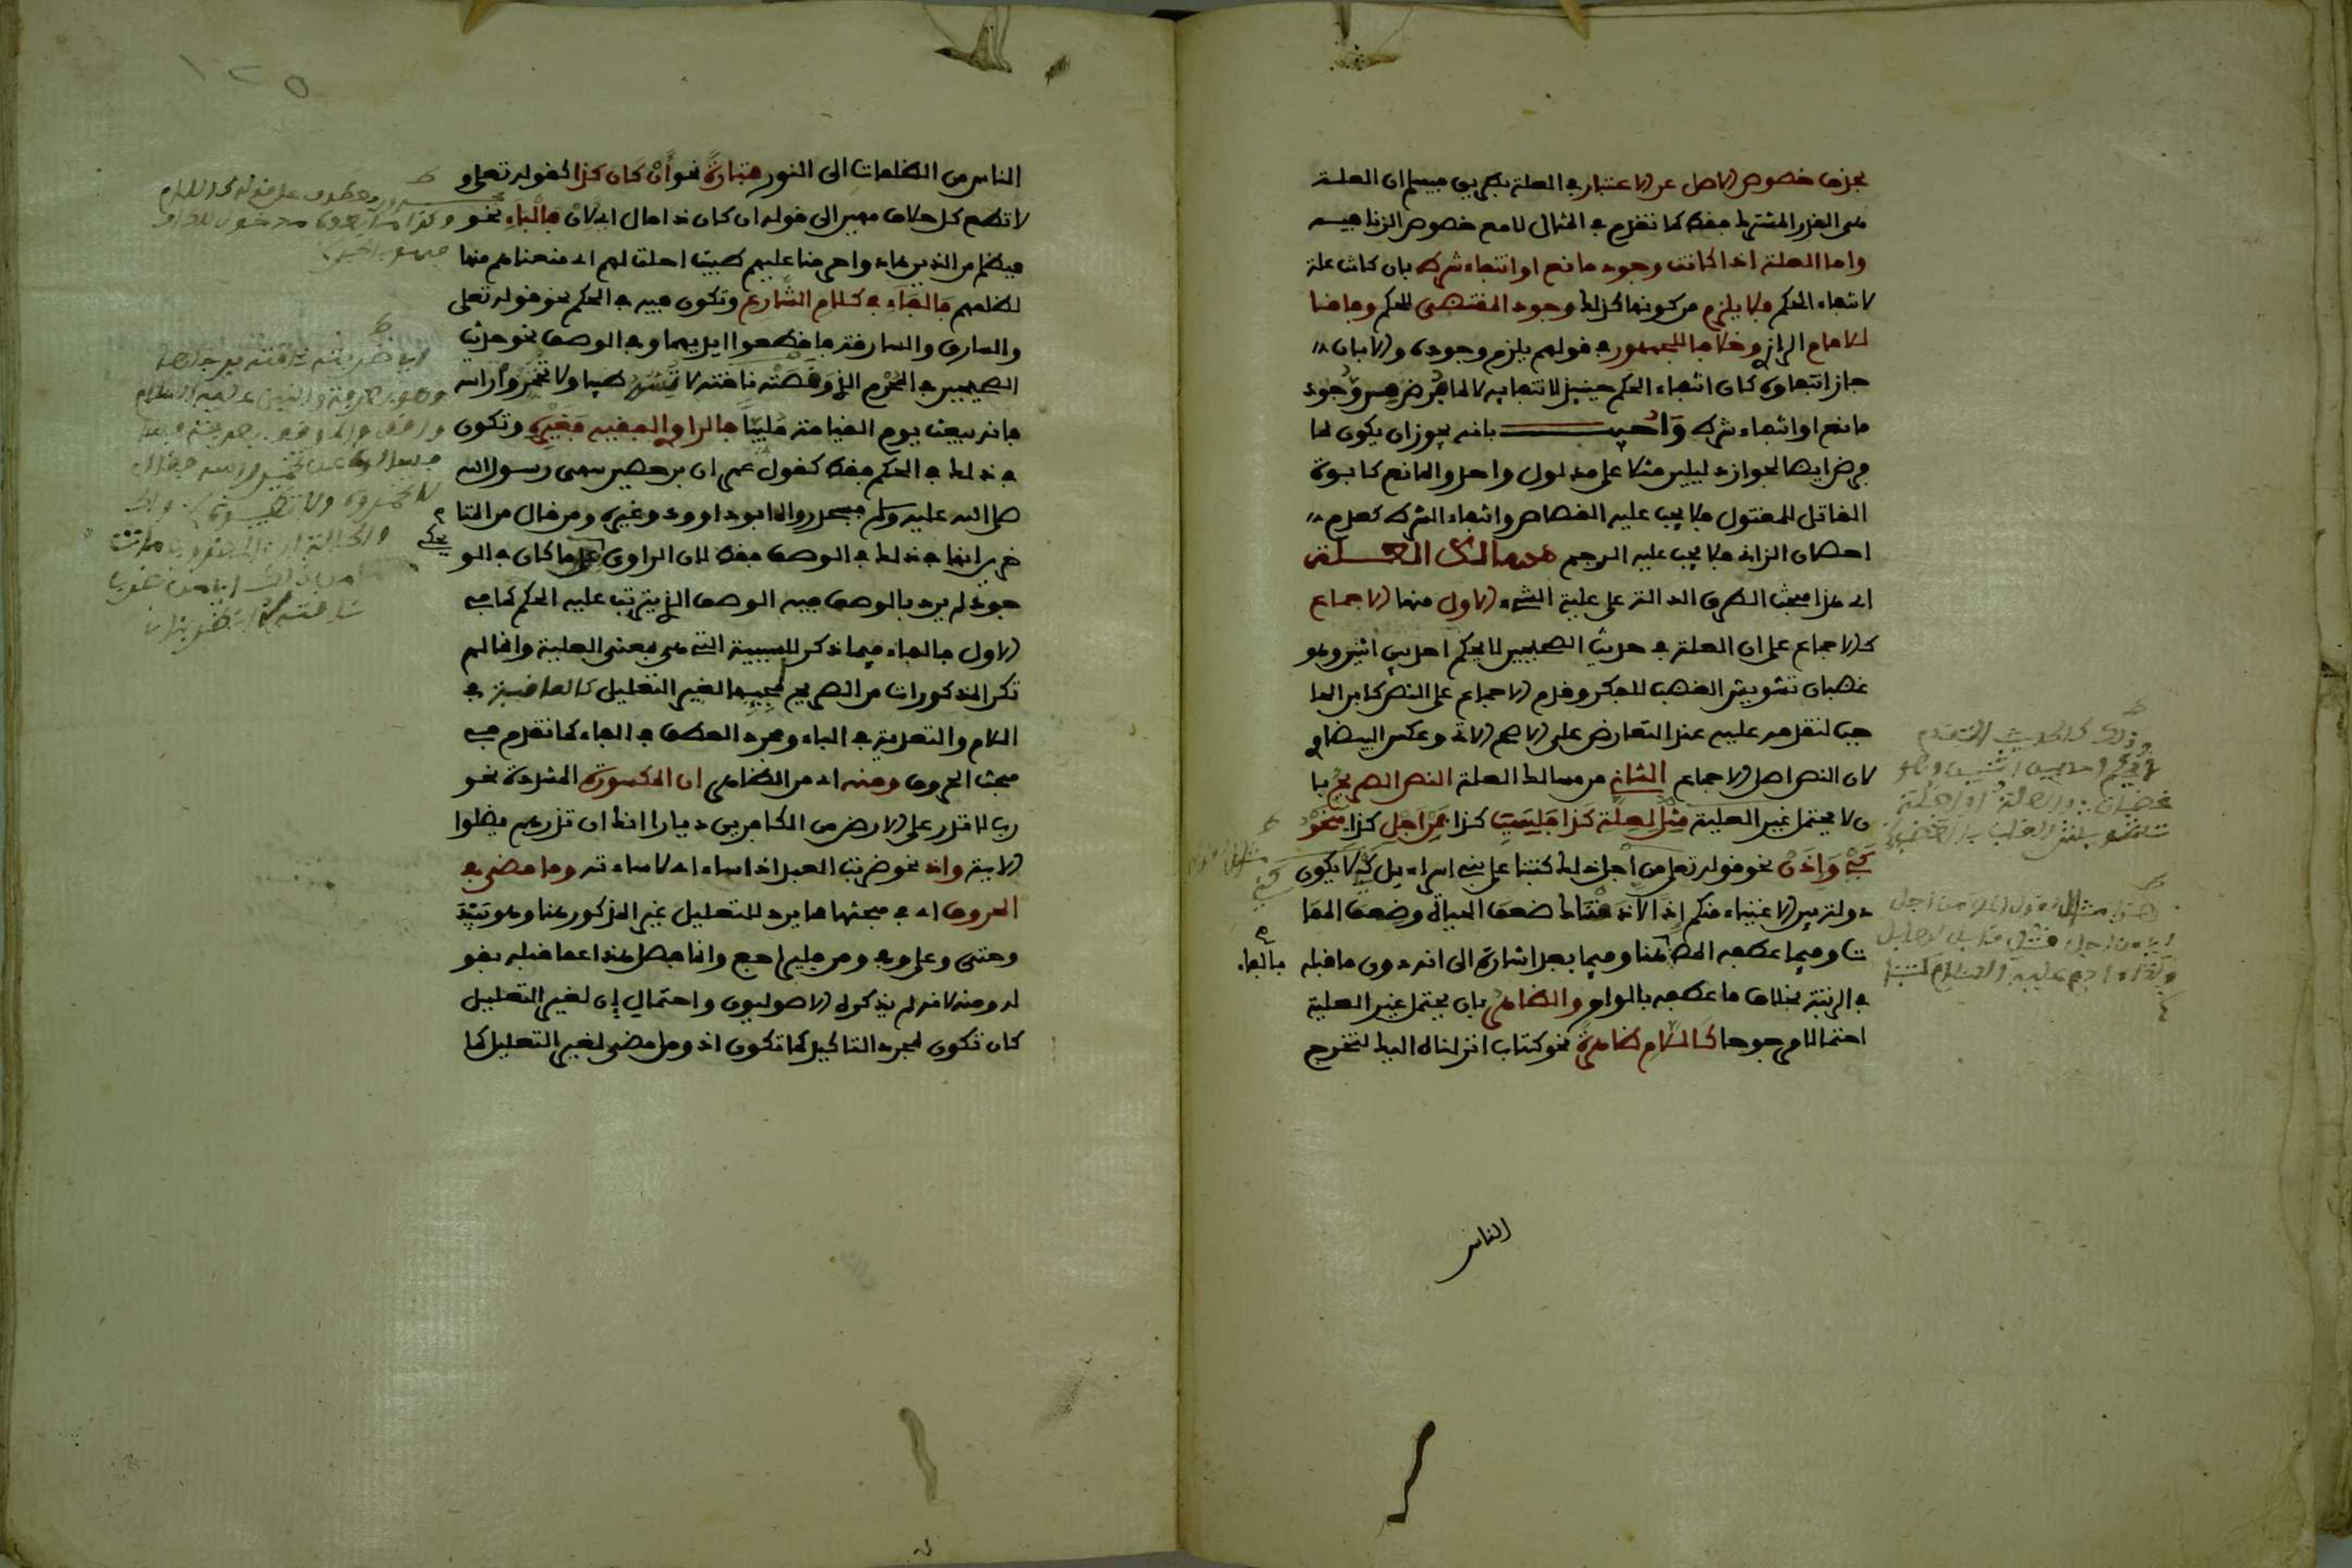 بحذف خصوص الاصل عن الاعتبار في العلة بطريق يبين ان العلة
هي القدر المشترك فقط كما تقدم في المثال لا مع خصوص الزنا فيه
واما العلة اذا كانت وجود مانع او انتفاء شرط بان كانت علة
لانتفاء الحكم فلا يلزم من كونها كذلك وجود المقتضى للحكم وفاقا
للامام الرازي وخلافا للجمهور في قولهم يلزم وجوده والا بان
جاز انتفاؤه كان انتفاء الحكم حينئذ لانتفائه لا لما فرض من وجود
مانع او انتفاء شرط واجيب بانه يجوز ان يكون لما
فرض ايضا لجواز دليلين مثلا على مدلول واحد والمانع كابوة
القاتل للمقتول فلا يجب عليه القصاص وانتفاء الشرط كعدم
احصان الزاني فلا يجب عليه الرجم مسالك العلة
اي هذا مبحث الطرق الدالة على علية الشيء الاول منها الاجماع
كالاجماع على ان العلة في حديث الصحيحين لا يحكم احد بين اثنين وهو
غضبان تشويش الغضب للفكر وقدم الاجماع على النص كابن الحا
جب لتقدمه عليه عند التعارض على الاصح الاتي وعكس البيضاوي
لان النص اصل الاجماع الثاني من مسالك العلة النص الصريح با
ن لا يحتمل غير العلية مثل لعلة كذا فلسبب كذا فمن اجل كذا فنحو
كي واذن نحو قوله تعلى من اجل ذلك كتبنا على بني اسراءيل كي لا يكون
دولة بين الاغنياء منكم اذا لاذقناك ضعف الحياة وضعف المما
ت وفيما عطفه المص هنا وفيما بعد اشارة الى انه دون ما قبله
بالفاء
في الرتبة بخلاف ما عطفه بالواو والظاهر بان يحتمل غير العلية
احتمالا مرجوحا كاللام ظاهرة نحو كتاب انزلناه اليك لتخرج
الناس
١٢٥
الناس من الظلمات الى النور فمقدرة نحو ان كان كذا كقوله تعلى و
لا تطع كل حلاف مهين الى قوله ان كان ذا مال اي لان فالباء نحو
فبظلم من الذين هادوا حرمنا عليهم طيبات احلت لهم اي منعناهم منها
لظلمهم فالفاء في كلام الشارع وتكون فيه في الحكم نحو قوله تعلى
والسارق والسارقة فاقطعوا ايديهما وفي الوصف نحو حديث
الصحيحين في المحرم الذي وقصته ناقته لا تمسوه طيبا ولا تخمروا راسه
فانه يبعث يوم القيامة ملبيا فالراوي الفقيه فغيره وتكون
في ذلك في الحكم فقط كقول عمران بن حصين سهى رسول الله
صلى الله عليه وسلم فسجد رواه ابو داوود وغيره ومن قال من المتا
خرين انها في ذلك في الوصف فقط لان الراوي يحكي ما كان في الو
جود لم يرد بالوصف فيه الوصف الذي يترتب عليه الحكم كما في
الاول فالفاء فيما ذكر للسببية التي هي بمعنى العلية وانما لم
تكن المذكورات من الصريح لمجيئها لغير التعليل كالعاقبة في
اللام والتعدية في الباء ومجرد العطف في الفاء كما تقدم في
مبحث الحروف ومنه اي من الظاهر ان المكسورة المشددة نحو
رب لا تذر على الارض من الكافرين ديارا انك ان تذرهم يضلوا
الاية واذ نحو ضربت العبد اذ اساء اي لاساءته وما مضى في
الحروف اي في مبحثها مما يرد للتعليل غير المذكور هنا وهو بيد
وحتى وعلى وفي ومن فليراجع وانما فصل هذا عما قبله بقو
له ومنه لانه لم يذكره الاصوليون واحتمال ان لغير التعليل
كان تكون لمجرد التاكيد كما تكون اذ وما مضى لغير التعليل كما